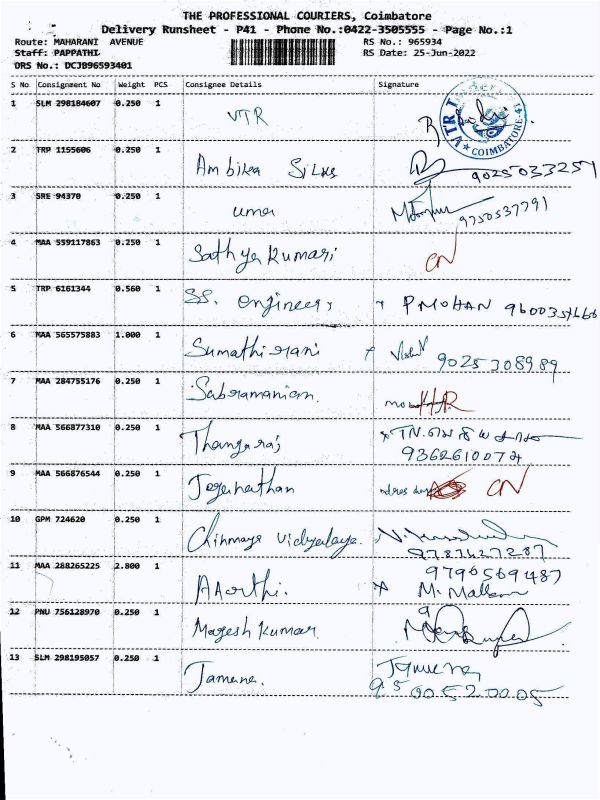 THE PROFESSIONAL COURIERS, Coimbatore
Delivery Runsheet - P41 - Phone No.:0422-3505555 - Page No.:1
Route: MAHARANI AVENUE
RS No.: 965934
Staff: PAPPATHI
RS Date: 25-Jun-2022
DRS No.: DCJB96593401
S No Consignment No Weight PCS Consignee Details Signature
1 SLM 298184607 0.250 1 VTR
VTR COIMBATORE-41
2 TRP 1155606 0.250 1 Ambika Silks 9025033259
3 SRE 94370 0.250 1 uma 9750537791
4 MAA 559117863 0.250 1 Sathyakumari CN
5 TRP 6161344 0.560 1 SS. engineers P MOHAN
6 MAA 565575883 1.000 1 Sumathi rani 9025308989
7 MAA 284755176 0.250 1 Sabramanian.
8 MAA 566877310 0.250 1 Thangaraj
9362610072
9 MAA 566876544 0.250 1 Jeganathan CN
10 GPM 724620 0.250 1 Chinmaya Vidyalaya.
9787427287
11 MAA 288265225 2.800 1 AAorthi. 9790569487
12 PNU 756128970 0.250 1 Magesh Kumar
13 SLM 298195057 0.250 1 Jamuna.
9500520005